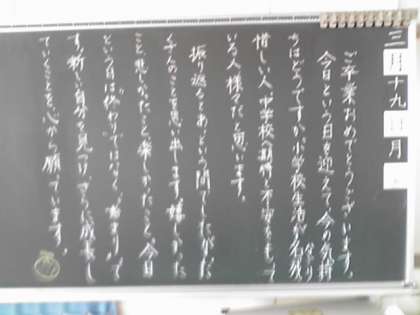 三月十九日月
ご卒業おめでとうございます。
今日という日を迎えて、今の気持
ちはどうですか。小学校生活が名残
惜しい人、中学校へ期待と不安をもって
いる人様々だと思います。
振り返るとあっという間でしたがた
くさんのことを思い出します。嬉しかった
こと、悲しかったこと、楽しかったこと。今日
という日は“終わり”ではなく、“始まり”で
す。新しい自分を見つけ、さらに成長し
ていくことを心から願っています。